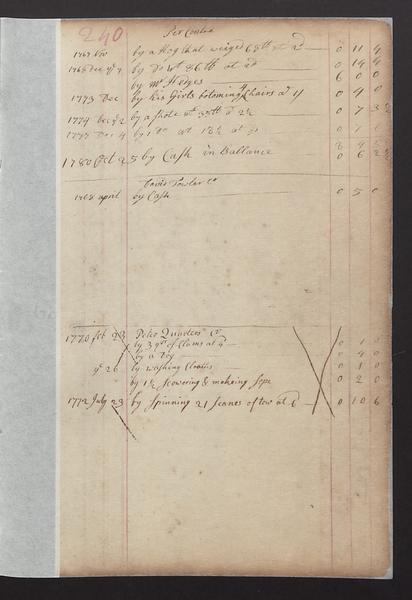 240
Per Contra
1767 Nov by a Hog that weiged 68 lb at 2d 0 11 4
1768 Dec ye 7 by Do wt 86 lb at 2d 0 14 4
by Mr Hedges 6 0 0
1773 Dec by his Girls botoming 4 Chairs at 1/ 0 4 0
1774 Dec ye 2 by a shote wt 35 lb at 2½ 0 7 3½
Dec 4 by 1 Do at
1780 Oct 25 by Cash in Ballance 0 6 2½
Fowler Cr
1768 april by Cash 0 5 0
1770 feb 23 Peter Quarters Cr
by 3 qrs of Clams at 4d 0 1
by a Day 0 4 0
ye 26 by washing Cloaths 0 1 0
by 1½ scowering & makeing sope 0 2 0
1772 July 23 by spinning 21 scanes of tow at 6d 0 10 6